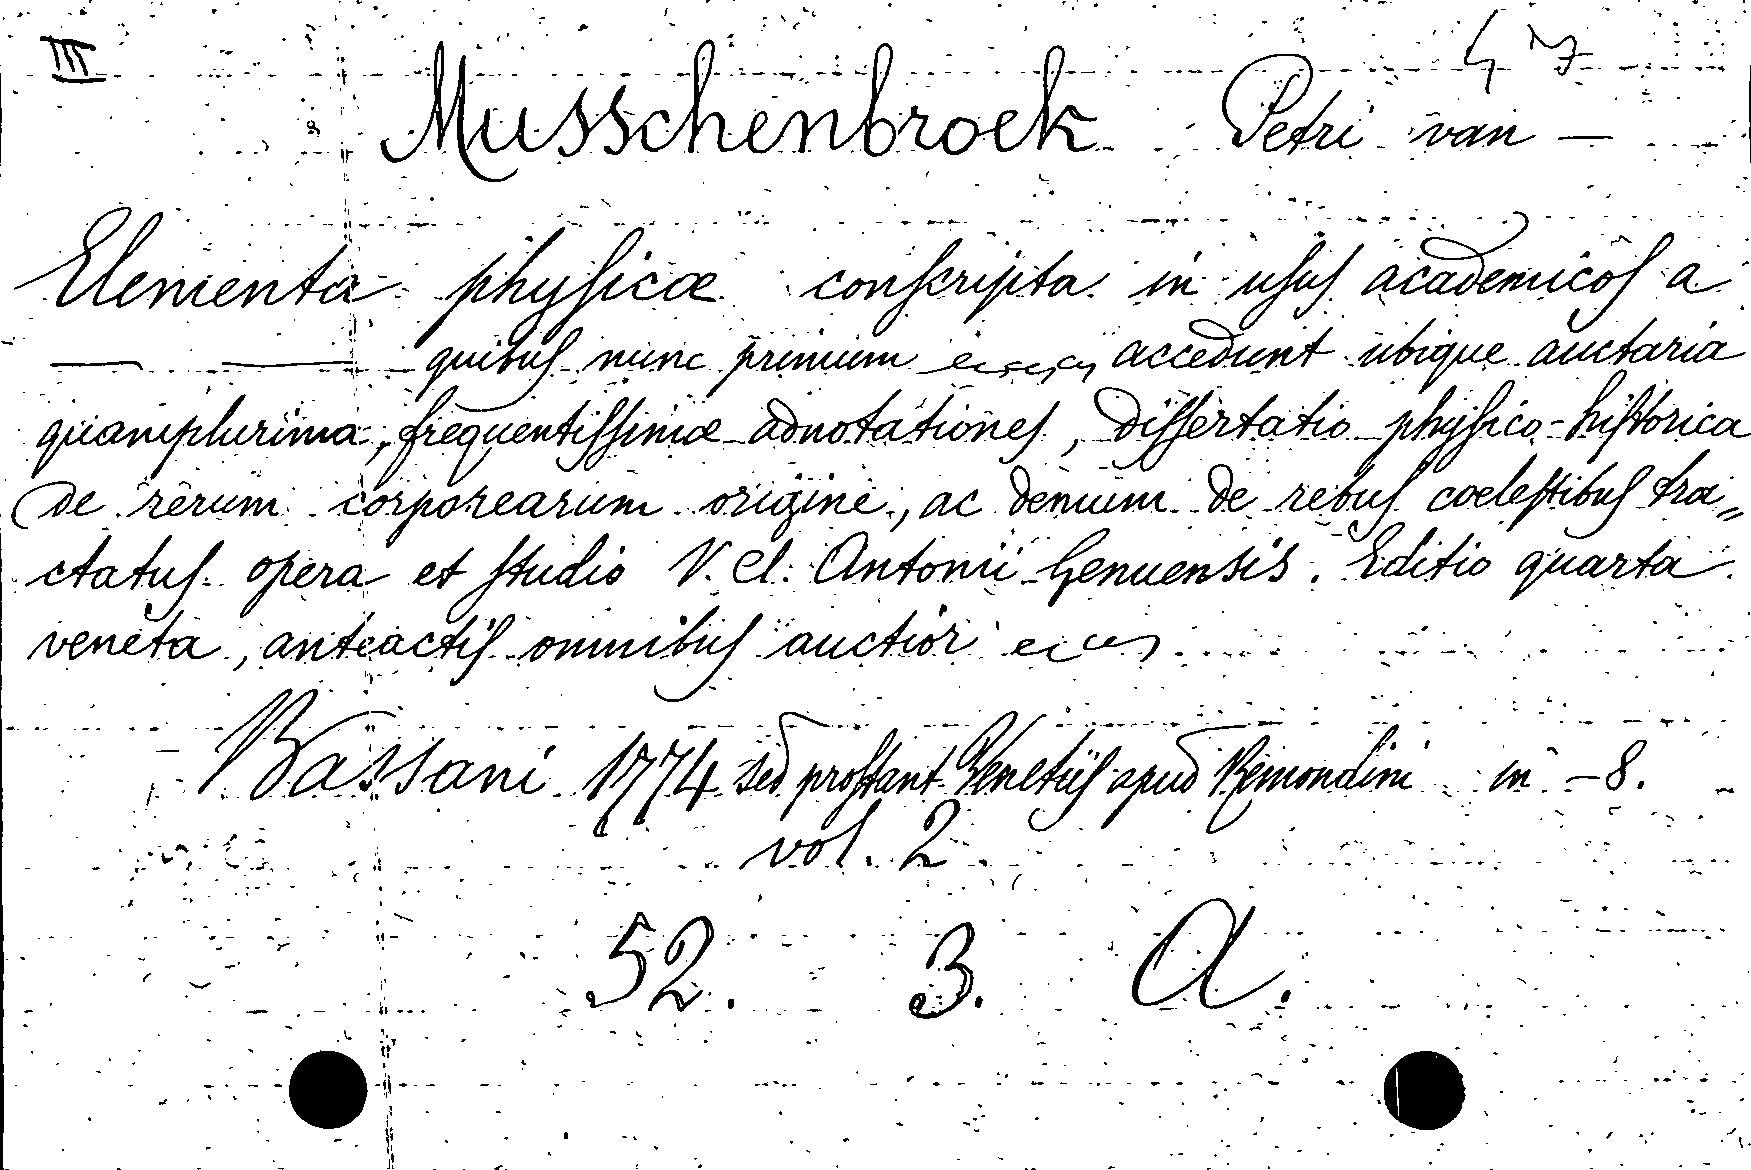 III
Musschenbroek Petri van —
Elementa physicæ conscripta in usus academicos a
— — quibus nunc primum accedunt ubique auctaria
quamplurima, frequentissimæ adnotationes, dissertatio physico-historica
de rerum corporearum origine, ac demum de rebus coelestibus tra„
ctatus opera et studio V. Cl. Antonii Genuensis. Editio quarta
veneta, anteactis omnibus auctior
Bassani 1774 sed prostant Venetiis apud Remondini in -8.
vol. 2
52. 3. A.